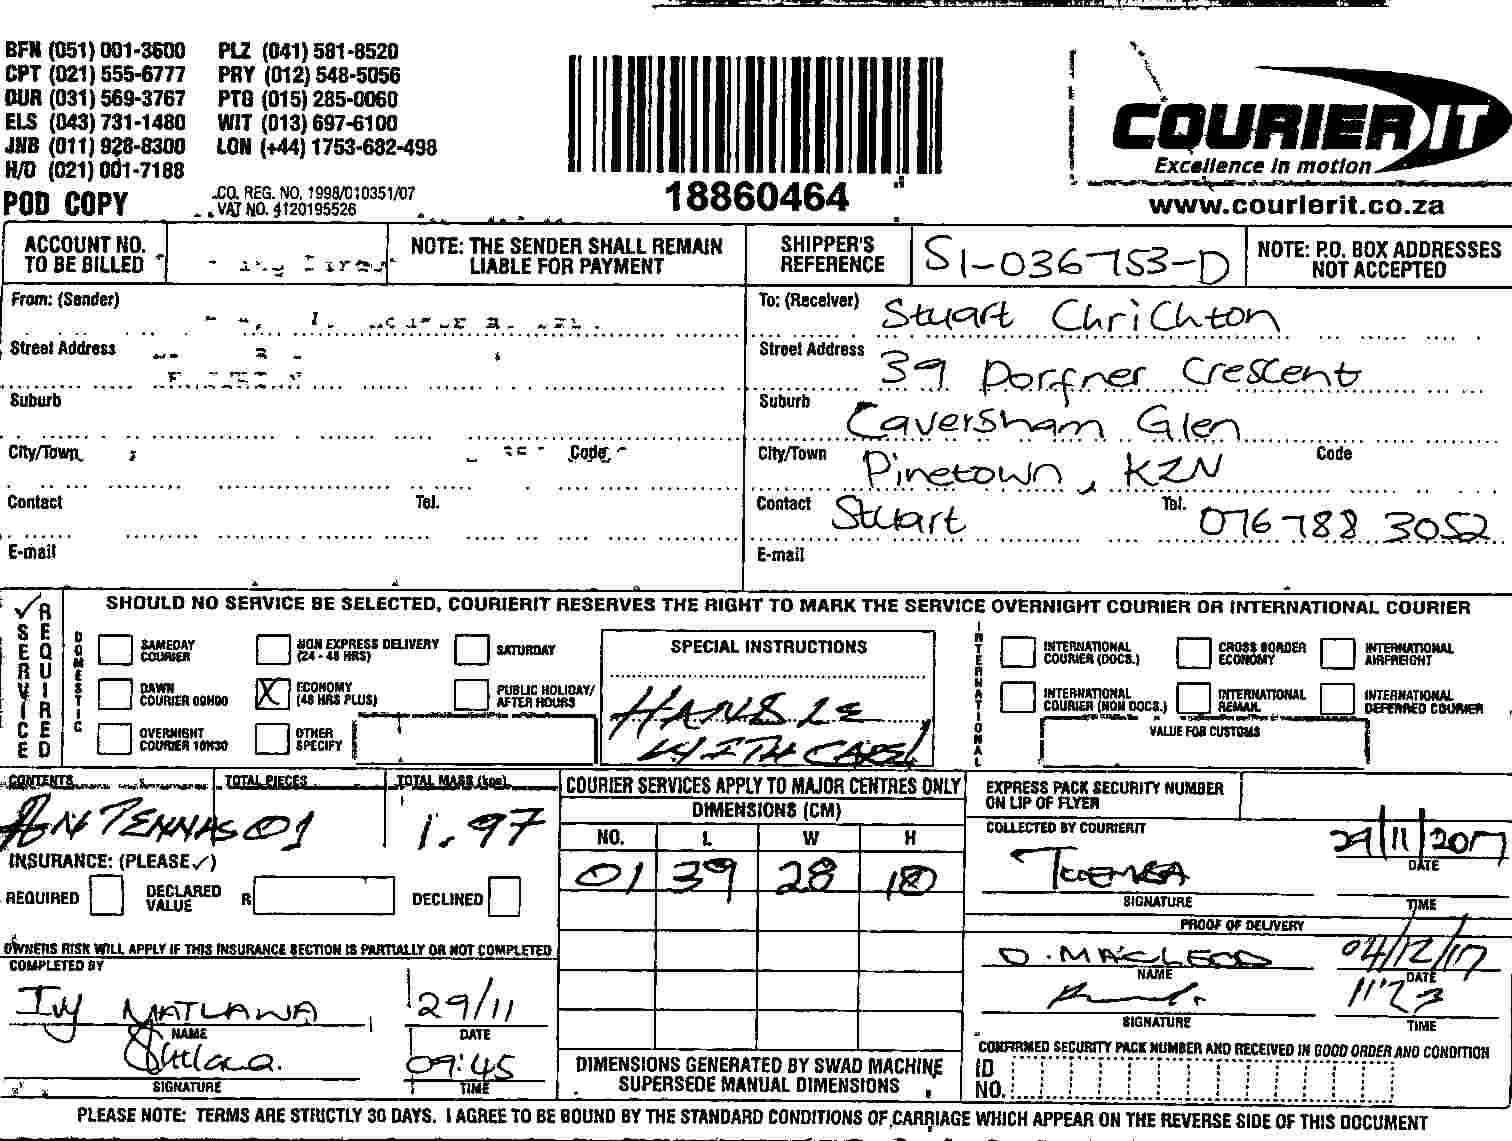 BFN (051) 001-3600 PLZ (041) 581-8520
CPT (021) 555-6777 PRY (012) 548-5056
DUR (031) 569-3767 PTG (015) 285-0060
ELS (043) 731-1480 WIT (013) 697-6100
JNB (011) 928-8300 LON (+44) 1753-682-498
H/O (021) 001-7188
POD COPY
CO. REG. NO. 1998/010351/07
VAT NO. 4120195526
18860464
COURIER IT
Excellence in motion
www.courierit.co.za
ACCOUNT NO. TO BE BILLED
NOTE: THE SENDER SHALL REMAIN LIABLE FOR PAYMENT
SHIPPER'S REFERENCE
S1-036753-D
NOTE: P.O. BOX ADDRESSES NOT ACCEPTED
From: (Sender)
Street Address
Suburb
City/Town Code
Contact Tel.
E-mail
To: (Receiver) Stuart Chrichton
Street Address 39 Dorfner Crescent
Suburb Caversham Glen
City/Town Pinetown, KZN Code
Contact Stuart Tel. 076 788 3052
E-mail
✓ SERVICE REQUIRED
SHOULD NO SERVICE BE SELECTED, COURIERIT RESERVES THE RIGHT TO MARK THE SERVICE OVERNIGHT COURIER OR INTERNATIONAL COURIER
DOMESTIC
SAMEDAY COURIER
NON EXPRESS DELIVERY (24 - 48 HRS)
SATURDAY
DAWN COURIER 09H00
X ECONOMY (48 HRS PLUS)
PUBLIC HOLIDAY/ AFTER HOURS
OVERNIGHT COURIER 10H30
OTHER SPECIFY
SPECIAL INSTRUCTIONS
HANDLE
WITH CARE!
INTERNATIONAL
INTERNATIONAL COURIER (DOCS.)
CROSS BORDER ECONOMY
INTERNATIONAL AIRFREIGHT
INTERNATIONAL COURIER (NON DOCS.)
INTERNATIONAL REMAIL
INTERNATIONAL DEFERRED COURIER
VALUE FOR CUSTOMS
CONTENTS TOTAL PIECES TOTAL MASS (kgs)
ANTENNAS 01 1.97
INSURANCE: (PLEASE ✓)
REQUIRED DECLARED VALUE R DECLINED
OWNERS RISK WILL APPLY IF THIS INSURANCE SECTION IS PARTIALLY OR NOT COMPLETED
COMPLETED BY
Ivy MATLAWA 29/11
NAME DATE
09:45
SIGNATURE TIME
COURIER SERVICES APPLY TO MAJOR CENTRES ONLY
DIMENSIONS (CM)
NO. L W H
01 39 28 10
DIMENSIONS GENERATED BY SWAD MACHINE SUPERSEDE MANUAL DIMENSIONS
EXPRESS PACK SECURITY NUMBER ON LIP OF FLYER
COLLECTED BY COURIERIT
29/11/2017
DATE
SIGNATURE TIME
PROOF OF DELIVERY
D. MACLEOD 04/12/17
NAME DATE
SIGNATURE TIME
CONFIRMED SECURITY PACK NUMBER AND RECEIVED IN GOOD ORDER AND CONDITION
ID NO.
PLEASE NOTE: TERMS ARE STRICTLY 30 DAYS. I AGREE TO BE BOUND BY THE STANDARD CONDITIONS OF CARRIAGE WHICH APPEAR ON THE REVERSE SIDE OF THIS DOCUMENT